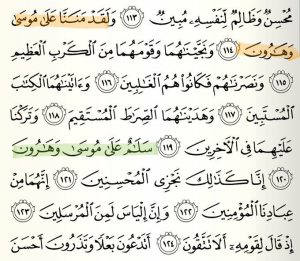 مُحْسِنٌ وَظَالِمٌ لِّنَفْسِهِۦ مُبِينٌ ﴿١١٣﴾ وَلَقَدْ مَنَنَّا عَلَىٰ مُوسَىٰ
وَهَٰرُونَ ﴿١١٤﴾ وَنَجَّيْنَٰهُمَا وَقَوْمَهُمَا مِنَ ٱلْكَرْبِ ٱلْعَظِيمِ
﴿١١٥﴾ وَنَصَرْنَٰهُمْ فَكَانُوا۟ هُمُ ٱلْغَٰلِبِينَ ﴿١١٦﴾ وَءَاتَيْنَٰهُمَا ٱلْكِتَٰبَ
ٱلْمُسْتَبِينَ ﴿١١٧﴾ وَهَدَيْنَٰهُمَا ٱلصِّرَٰطَ ٱلْمُسْتَقِيمَ ﴿١١٨﴾ وَتَرَكْنَا
عَلَيْهِمَا فِى ٱلْءَاخِرِينَ ﴿١١٩﴾ سَلَٰمٌ عَلَىٰ مُوسَىٰ وَهَٰرُونَ
﴿١٢٠﴾ إِنَّا كَذَٰلِكَ نَجْزِى ٱلْمُحْسِنِينَ ﴿١٢١﴾ إِنَّهُمَا مِنْ
عِبَادِنَا ٱلْمُؤْمِنِينَ ﴿١٢٢﴾ وَإِنَّ إِلْيَاسَ لَمِنَ ٱلْمُرْسَلِينَ ﴿١٢٣﴾
إِذْ قَالَ لِقَوْمِهِۦٓ أَلَا تَتَّقُونَ ﴿١٢٤﴾ أَتَدْعُونَ بَعْلًا وَتَذَرُونَ أَحْسَنَ